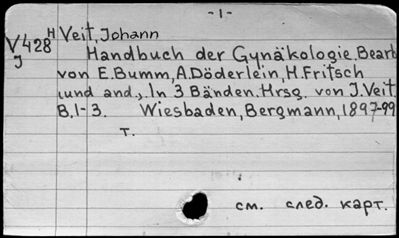 -1-
V428 H Veit, Johann
J Handbuch der Gynäkologie. Bearb.
von E.Bumm, A.Döderlein, H.Fritsch
und and., In 3 Bänden. Hrsg. von J.Veit.
B.1-3. Wiesbaden, Bergmann, 1897-99
т.
см. след. карт.